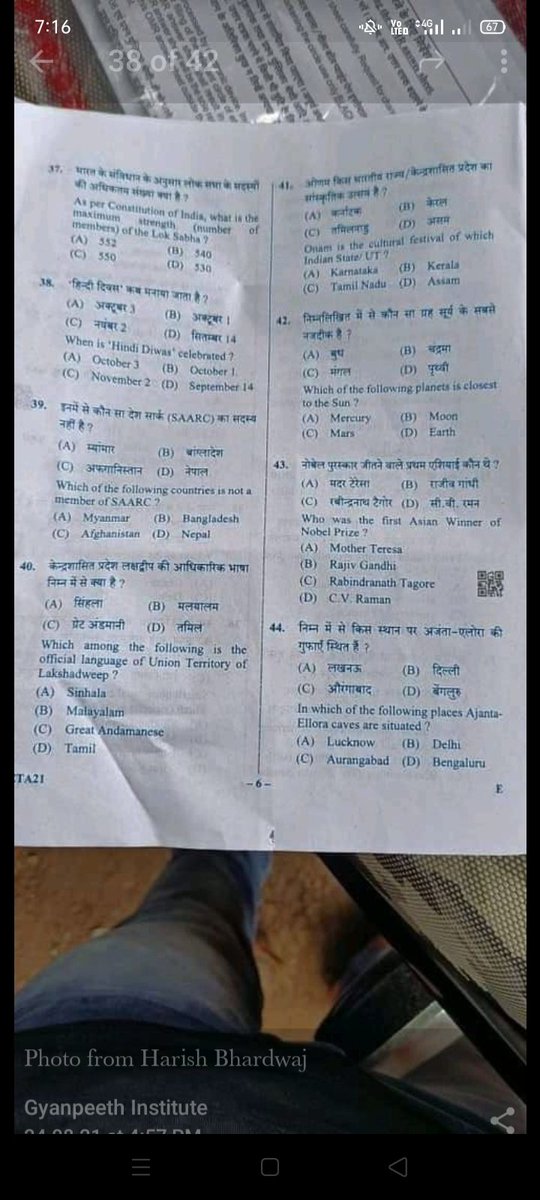 7:16
Vo LTED
4G
67
38 of 42
37. भारत के संविधान के अनुसार लोक सभा के सदस्यों
की अधिकतम संख्या क्या है ?
As per Constitution of India, what is the
maximum strength (number of
members) of the Lok Sabha ?
(A) 552 (B) 540
(C) 550 (D) 530
38. 'हिन्दी दिवस' कब मनाया जाता है ?
(A) अक्टूबर 3 (B) अक्टूबर 1
(C) नवंबर 2 (D) सितम्बर 14
When is 'Hindi Diwas' celebrated ?
(A) October 3 (B) October 1
(C) November 2 (D) September 14
39. इनमें से कौन सा देश सार्क (SAARC) का सदस्य
नहीं है ?
(A) म्यांमार (B) बांग्लादेश
(C) अफगानिस्तान (D) नेपाल
Which of the following countries is not a
member of SAARC ?
(A) Myanmar (B) Bangladesh
(C) Afghanistan (D) Nepal
40. केन्द्रशासित प्रदेश लक्षद्वीप की आधिकारिक भाषा
निम्न में से क्या है ?
(A) सिंहला (B) मलयालम
(C) ग्रेट अंडमानी (D) तमिल
Which among the following is the
official language of Union Territory of
Lakshadweep ?
(A) Sinhala
(B) Malayalam
(C) Great Andamanese
(D) Tamil
41. ओणम किस भारतीय राज्य/केन्द्रशासित प्रदेश का
सांस्कृतिक उत्सव है ?
(A) कर्नाटक (B) केरल
(C) तमिलनाडु (D) असम
Onam is the cultural festival of which
Indian State/ UT ?
(A) Karnataka (B) Kerala
(C) Tamil Nadu (D) Assam
42. निम्नलिखित में से कौन सा ग्रह सूर्य के सबसे
नजदीक है ?
(A) बुध (B) चंद्रमा
(C) मंगल (D) पृथ्वी
Which of the following planets is closest
to the Sun ?
(A) Mercury (B) Moon
(C) Mars (D) Earth
43. नोबेल पुरस्कार जीतने वाले प्रथम एशियाई कौन थे ?
(A) मदर टेरेसा (B) राजीव गांधी
(C) रबीन्द्रनाथ टैगोर (D) सी.वी. रमन
Who was the first Asian Winner of
Nobel Prize ?
(A) Mother Teresa
(B) Rajiv Gandhi
(C) Rabindranath Tagore
(D) C.V. Raman
44. निम्न में से किस स्थान पर अजंता-एलोरा की
गुफाएँ स्थित हैं ?
(A) लखनऊ (B) दिल्ली
(C) औरंगाबाद (D) बेंगलुरु
In which of the following places Ajanta-
Ellora caves are situated ?
(A) Lucknow (B) Delhi
(C) Aurangabad (D) Bengaluru
TA21
-6-
E
Photo from Harish Bhardwaj
Gyanpeeth Institute